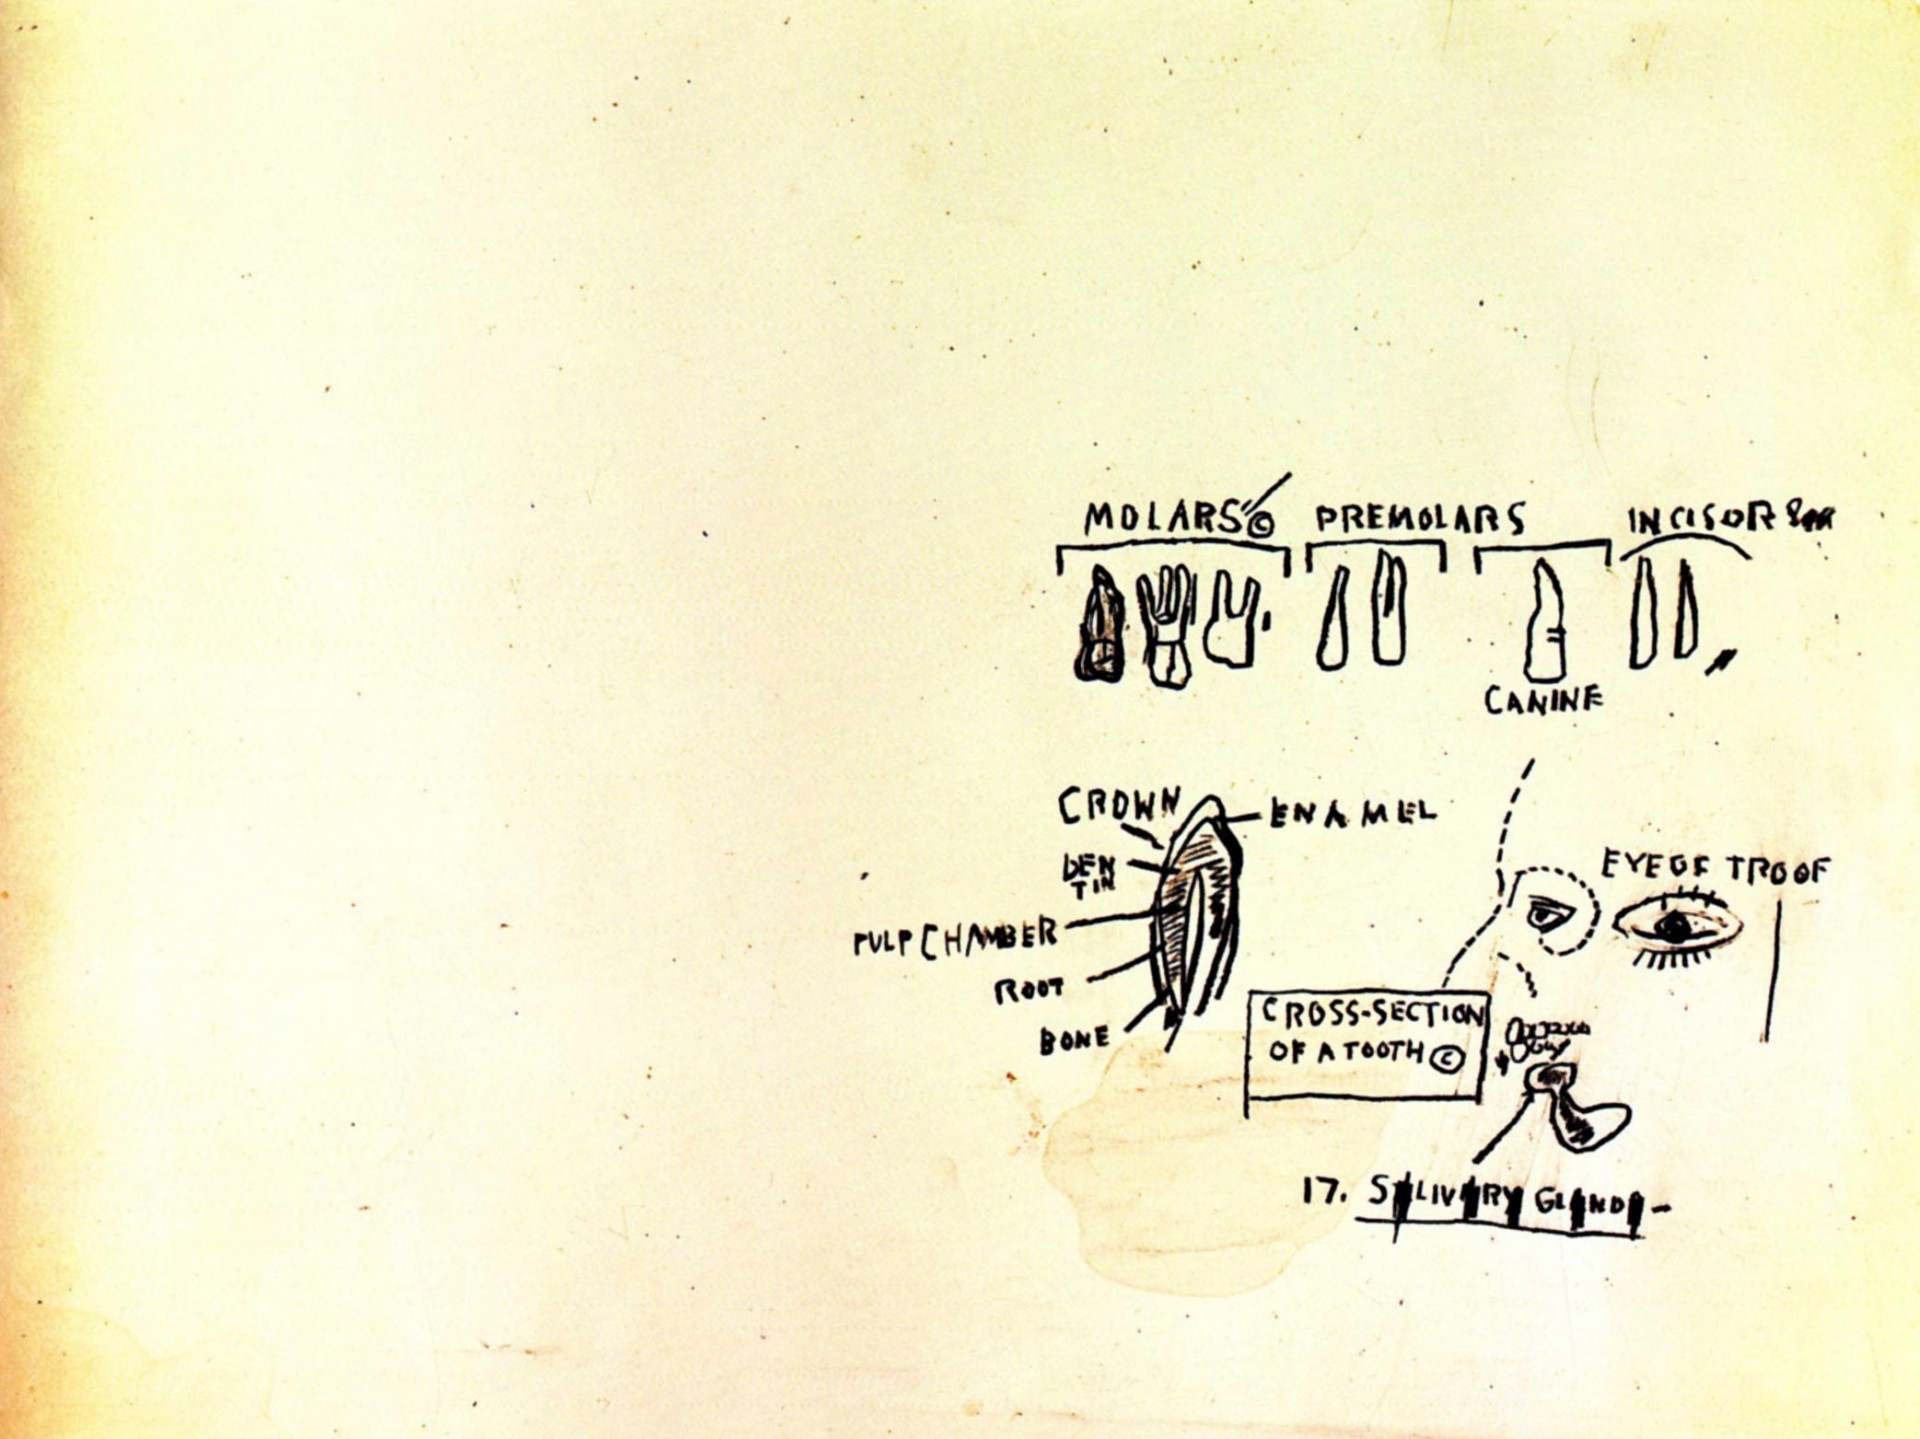 MOLARS©
PREMOLARS
INCISORS
CANINE
CROWN
ENAMEL
DEN
TIN
PULP CHAMBER
ROOT
BONE
EYE OF TROOF
CROSS-SECTION
OF A TOOTH ©
17. SALIVARY GLANDS-